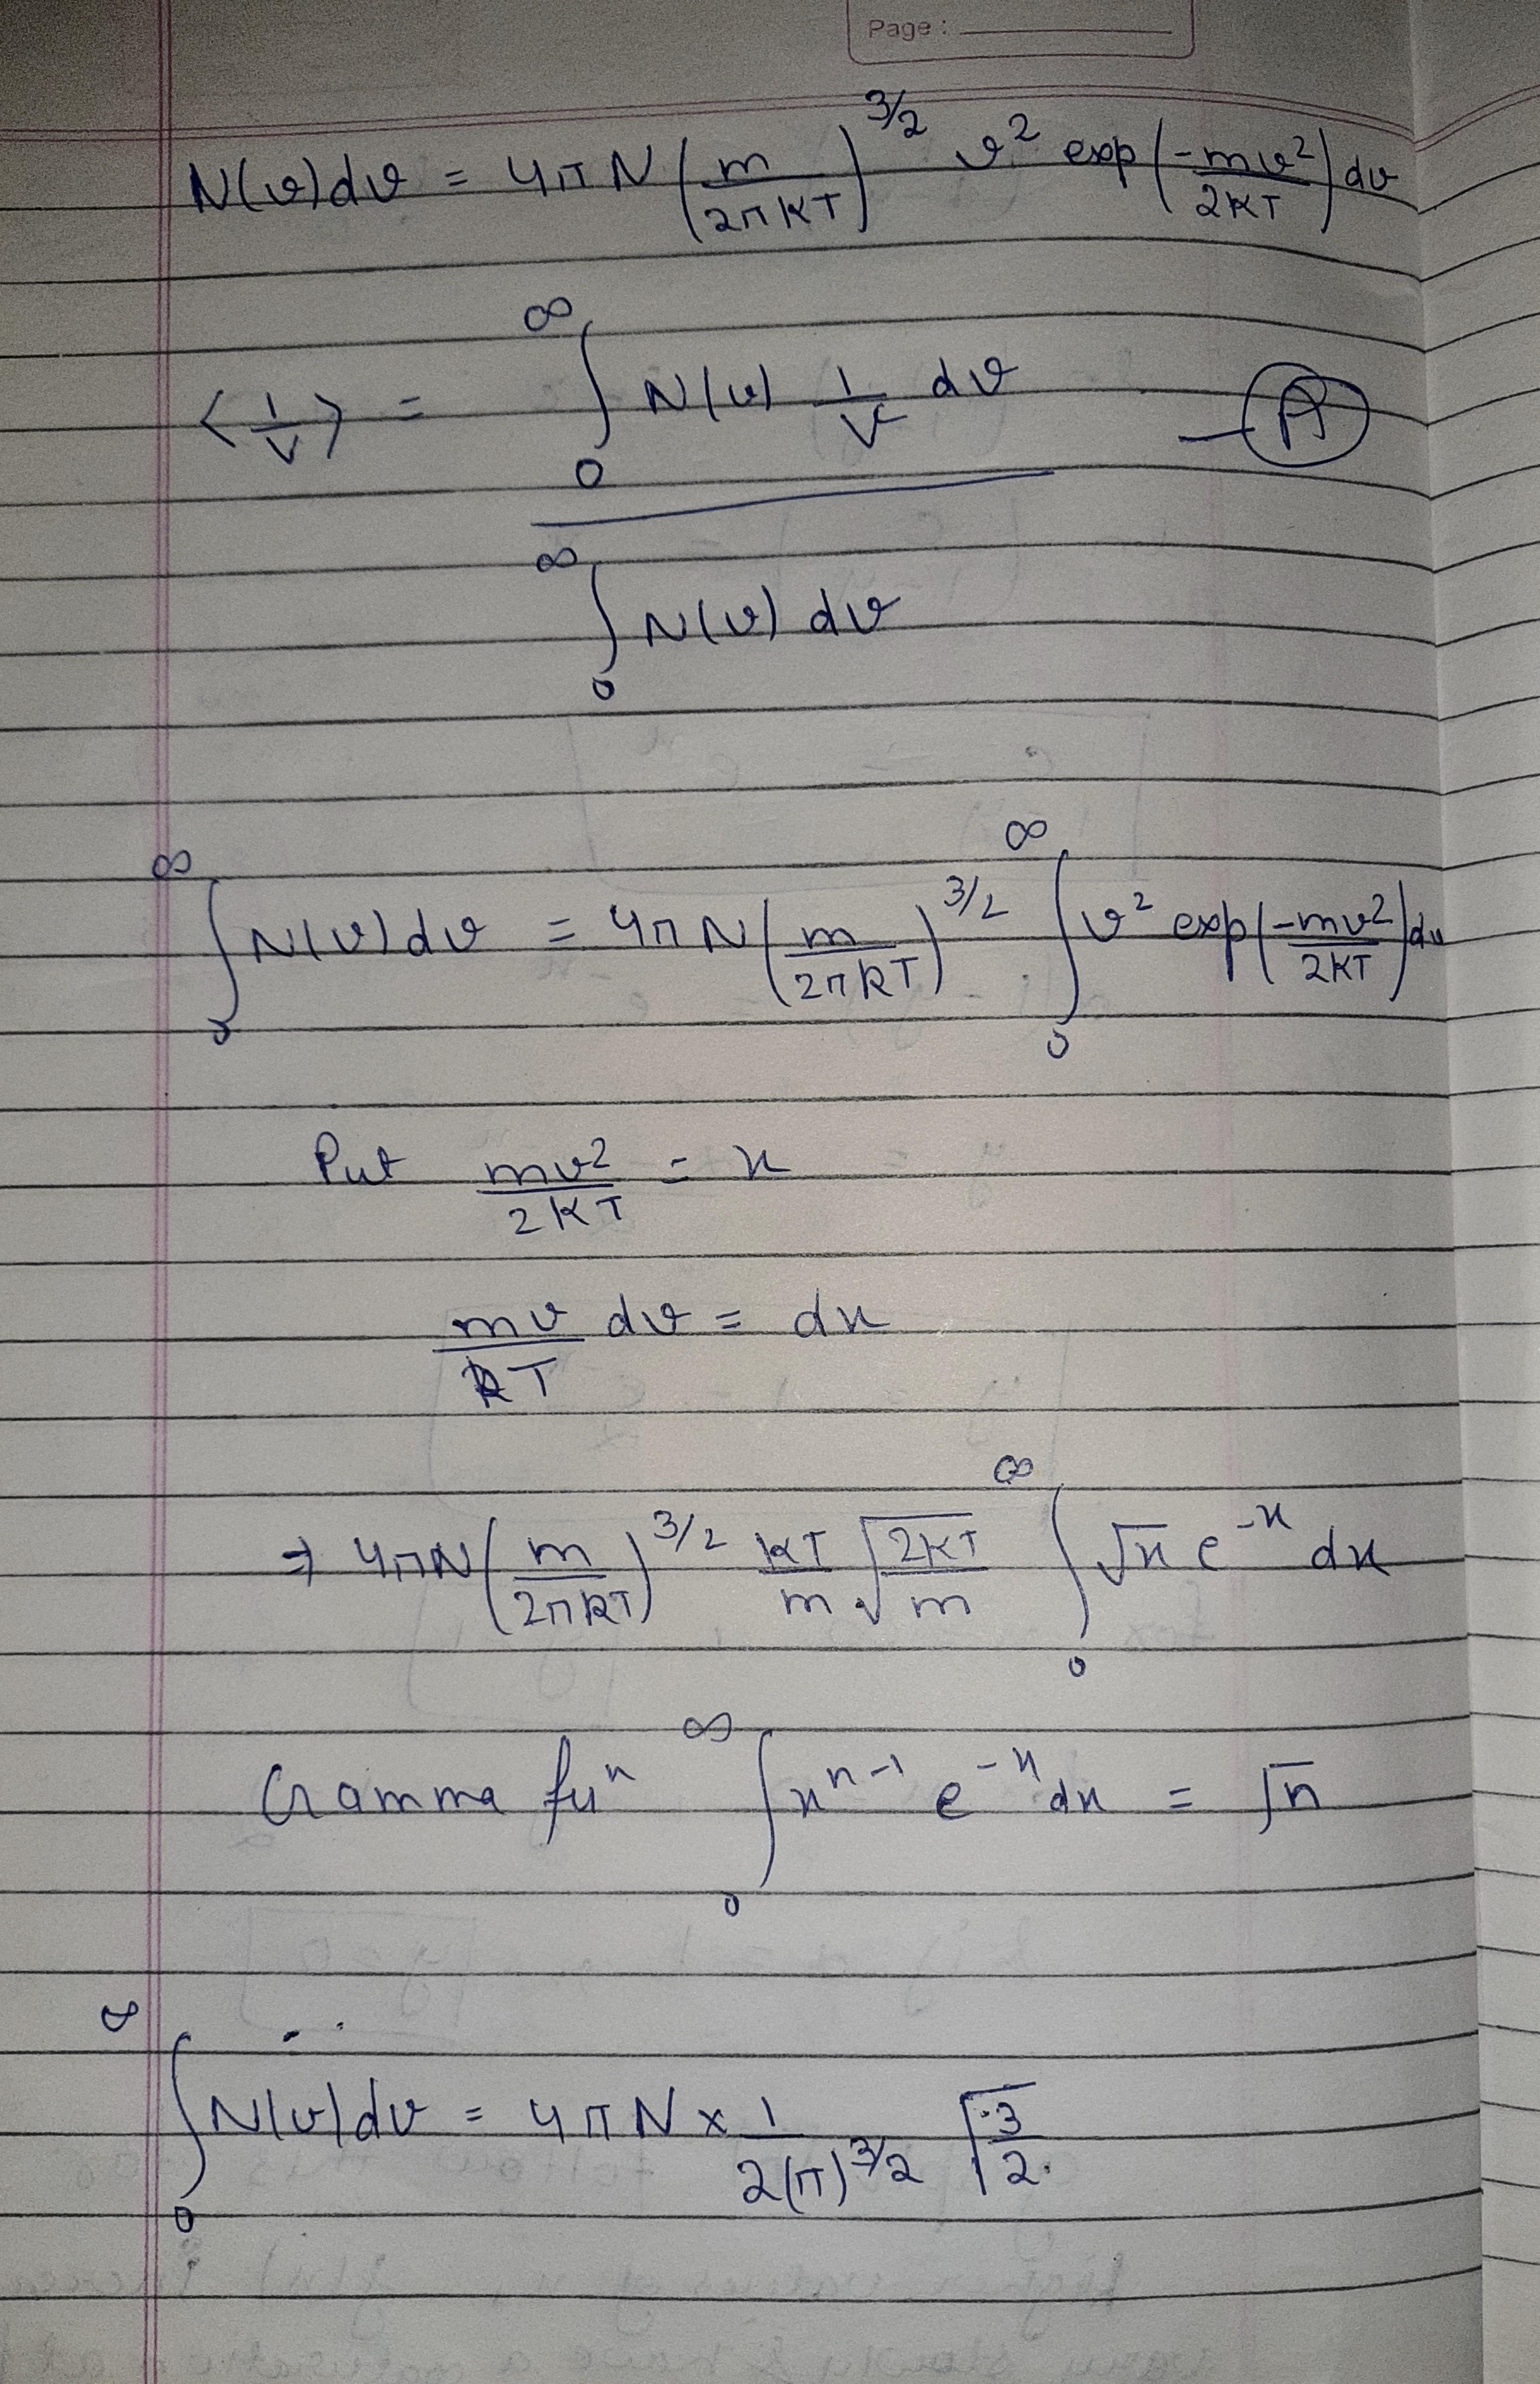 Page :
N(v)dv = 4πN (m/2πKT)^3/2 v² exp(-mv²/2KT) dv
<1/v> = ∫₀^∞ N(v) 1/v dv — (A)
∫₀^∞ N(v) dv
∫₀^∞ N(v)dv = 4πN (m/2πKT)^3/2 ∫₀^∞ v² exp(-mv²/2KT) dv
Put mv²/2KT = x
mv/KT dv = dx
⇒ 4πN (m/2πKT)^3/2 KT/m √(2KT/m) ∫₀^∞ √x e^-x dx
Gamma fuⁿ ∫₀^∞ x^n-1 e^-x dx = √n
∫₀^∞ N(v)dv = 4πN × 1/2(π)^3/2 √(3/2)